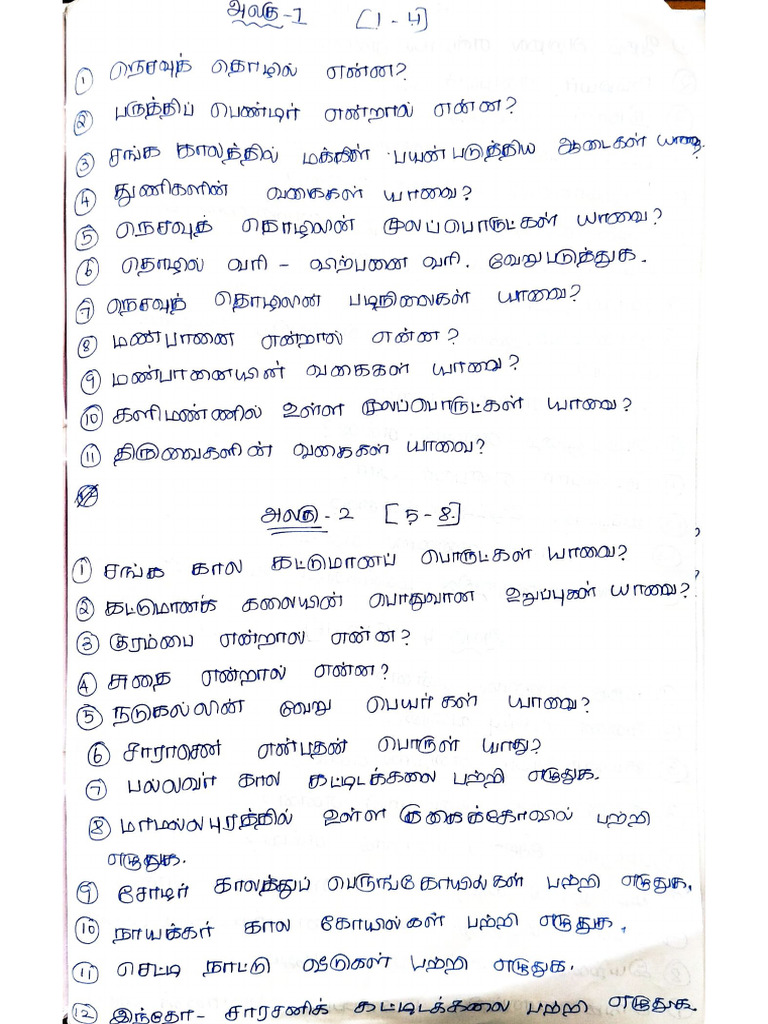 அலகு-1 [1-4]
① நெசவுத் தொழில் என்ன?
② பருத்திப் பெண்டிர் என்றால் என்ன?
③ சங்க காலத்தில் மக்கள் பயன்படுத்திய ஆடைகள் யாவை?
④ துணிகளின் வகைகள் யாவை?
⑤ நெசவுத் தொழிலின் மூலப்பொருட்கள் யாவை?
⑥ தொழில் வரி - விற்பனை வரி. வேறுபடுத்துக.
⑦ நெசவுத் தொழிலன் படிநிலைகள் யாவை?
⑧ மண்பானை என்றால் என்ன?
⑨ மண்பானையின் வகைகள் யாவை?
⑩ களிமண்ணில் உள்ள மூலப்பொருட்கள் யாவை?
⑪ திருவைகளின் வகைகள் யாவை?
அலகு-2 [5-8.]
① சங்க கால கட்டுமானப் பொருட்கள் யாவை?
② கட்டுமானக் கலையின் பொதுவான உறுப்புகள் யாவை?
③ குரம்பை என்றால் என்ன?
④ சுதை என்றால் என்ன?
⑤ நடுகல்லின் வேறு பெயர்கள் யாவை?
⑥ என்பதன் பொருள் யாது?
⑦ பல்லவர் கால கட்டிடக்கலை பற்றி எழுதுக.
⑧ மாமல்லபுரத்தில் உள்ள குகைக்கோவில் பற்றி
எழுதுக.
⑨ சோழர் காலத்துப் பெருங்கோயில்கள் பற்றி எழுதுக.
⑩ நாயக்கர் கால கோயில்கள் பற்றி எழுதுக.
⑪ செட்டி நாட்டு வீடுகள் பற்றி எழுதுக.
⑫ இந்தோ- சாரசனிக் கட்டிடக்கலை பற்றி எழுதுக.